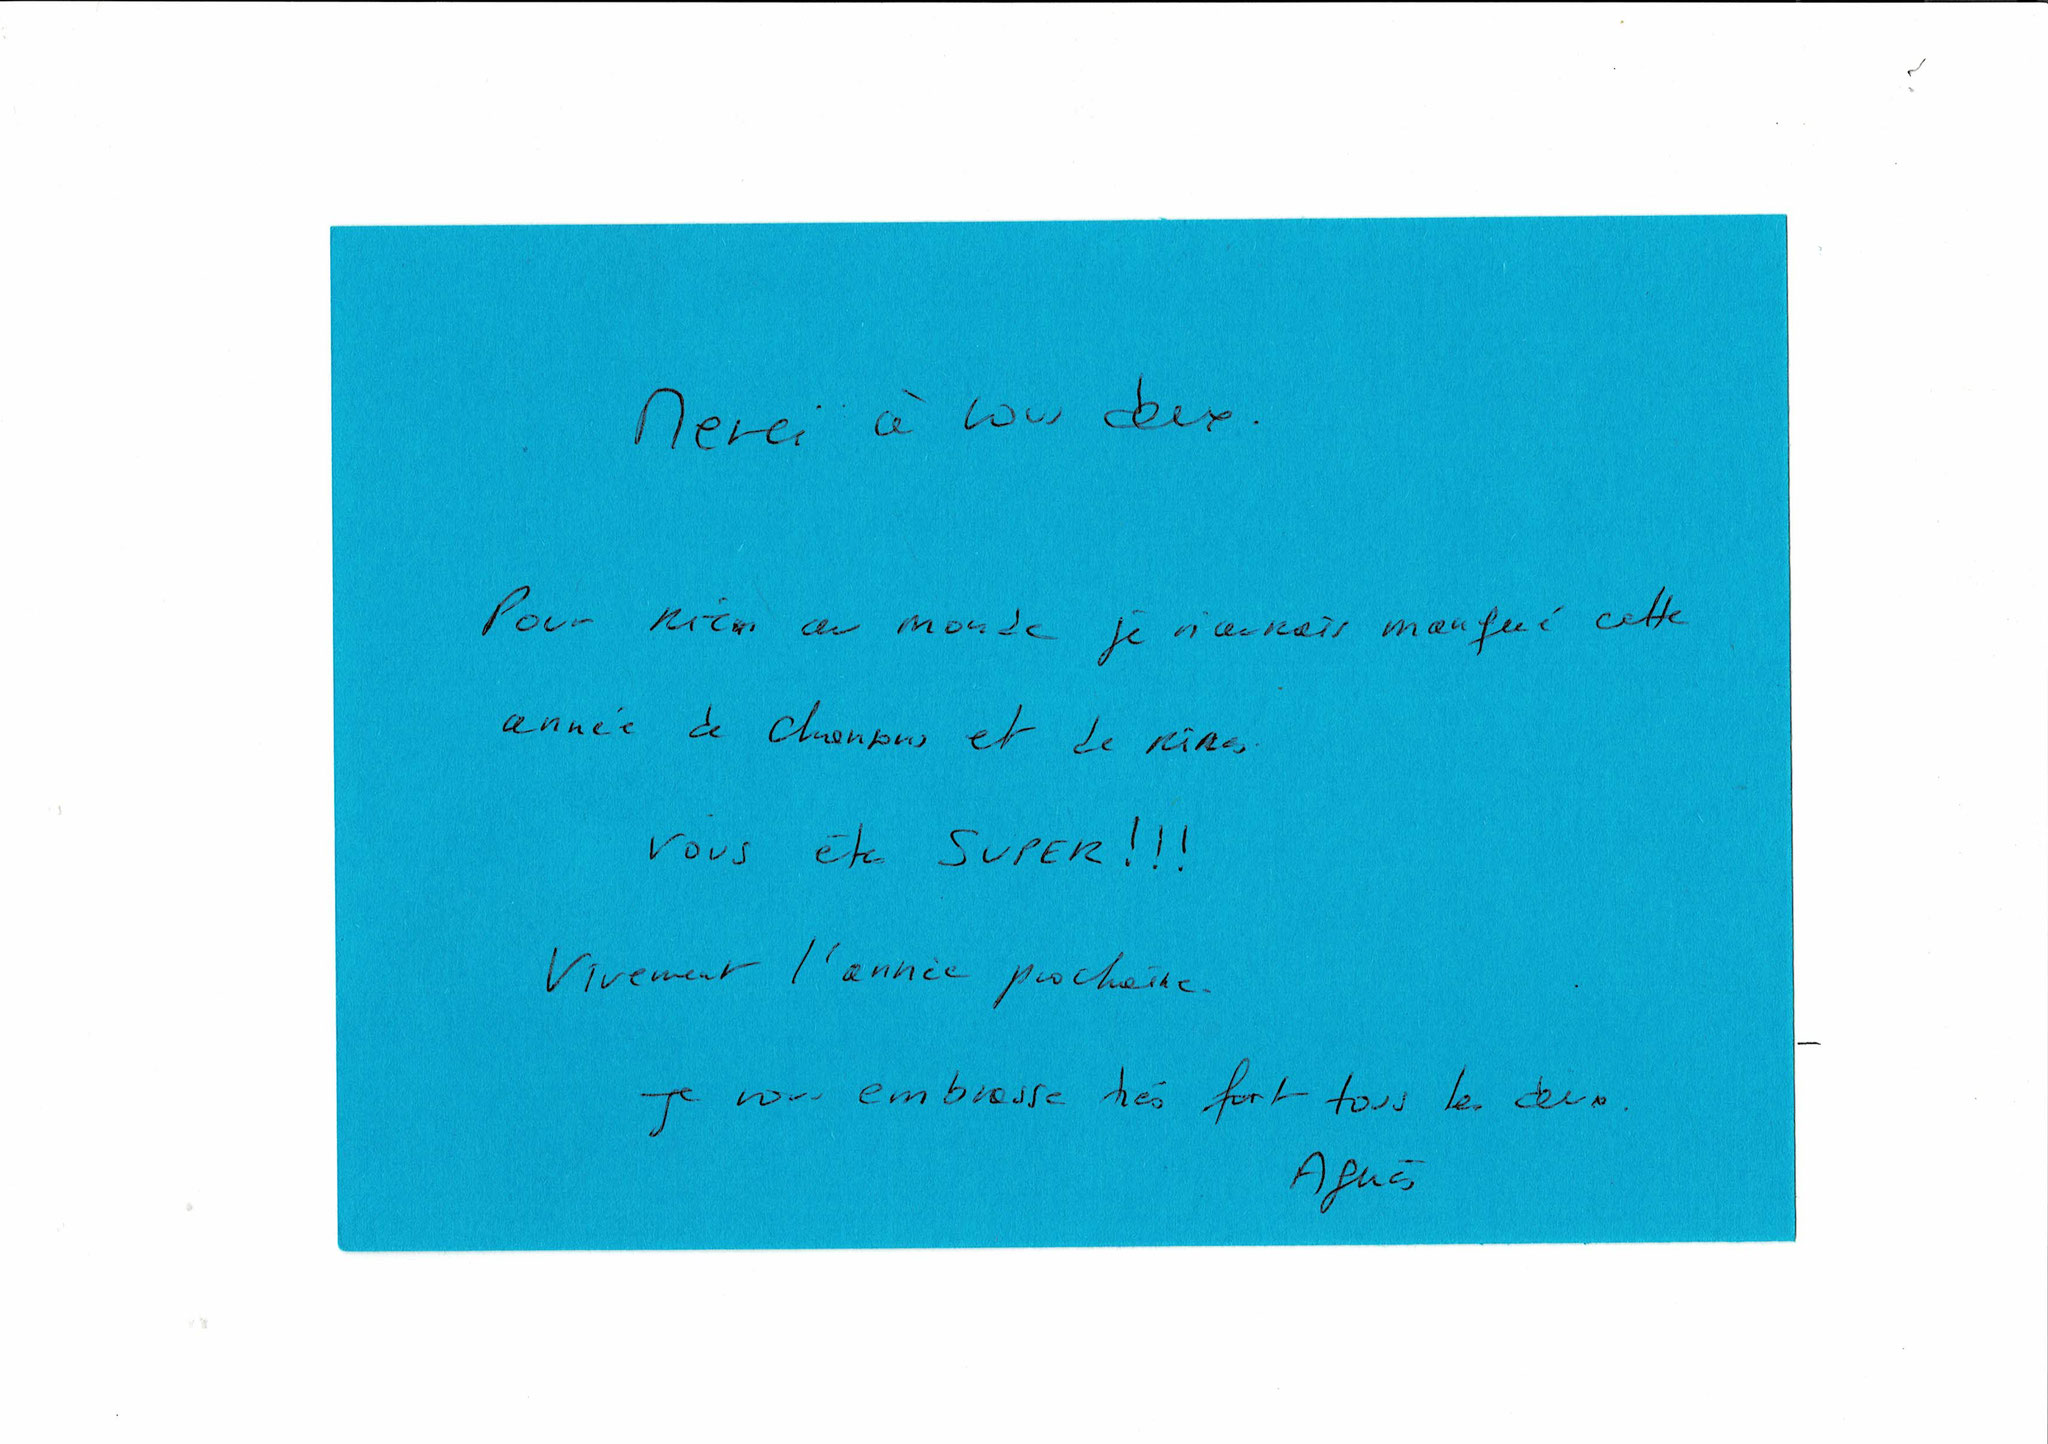 Merci à vous deux.
Pour rien au monde je n'aurais manqué cette
année de chansons et de rires.
Vous êtes SUPER!!!
Vivement l'année prochaine.
Je vous embrasse très fort tous les deux.
Agnès